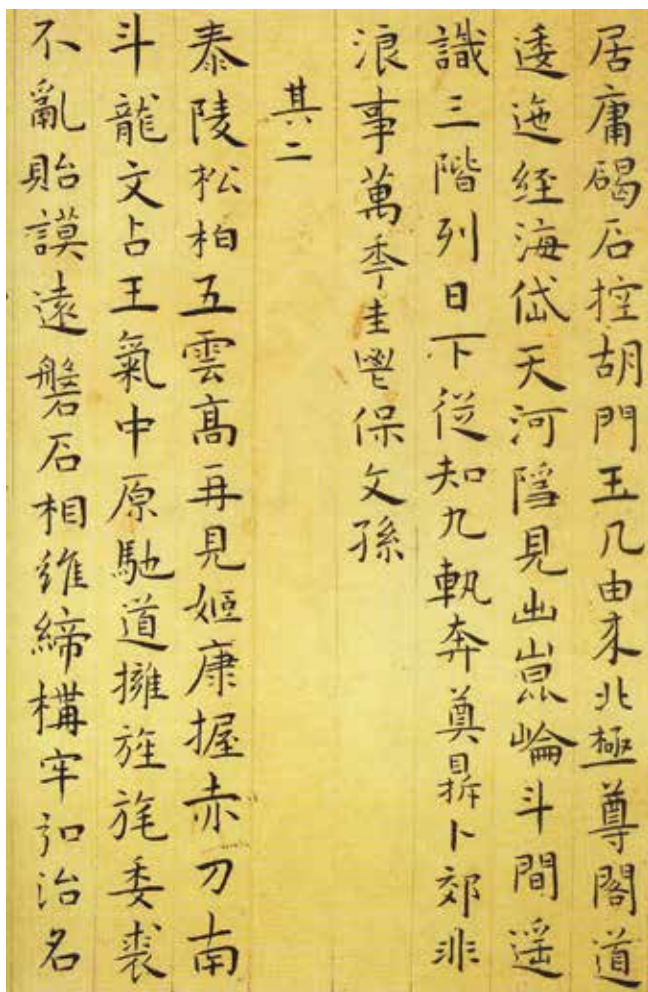 居庸碣石控胡門玉几由来北極尊閣道
逶迤經海岱天河隱見出崑崙斗間遥
識三階列日下從知九軌奔奠鼎卜郊非
浪事萬季圭鬯保文孫
其二
泰陵松柏五雲高再見姬康握赤刀南
斗龍文占王氣中原馳道擁旌旄委裘
不亂貽謨遠磐石相維締構牢訒治名